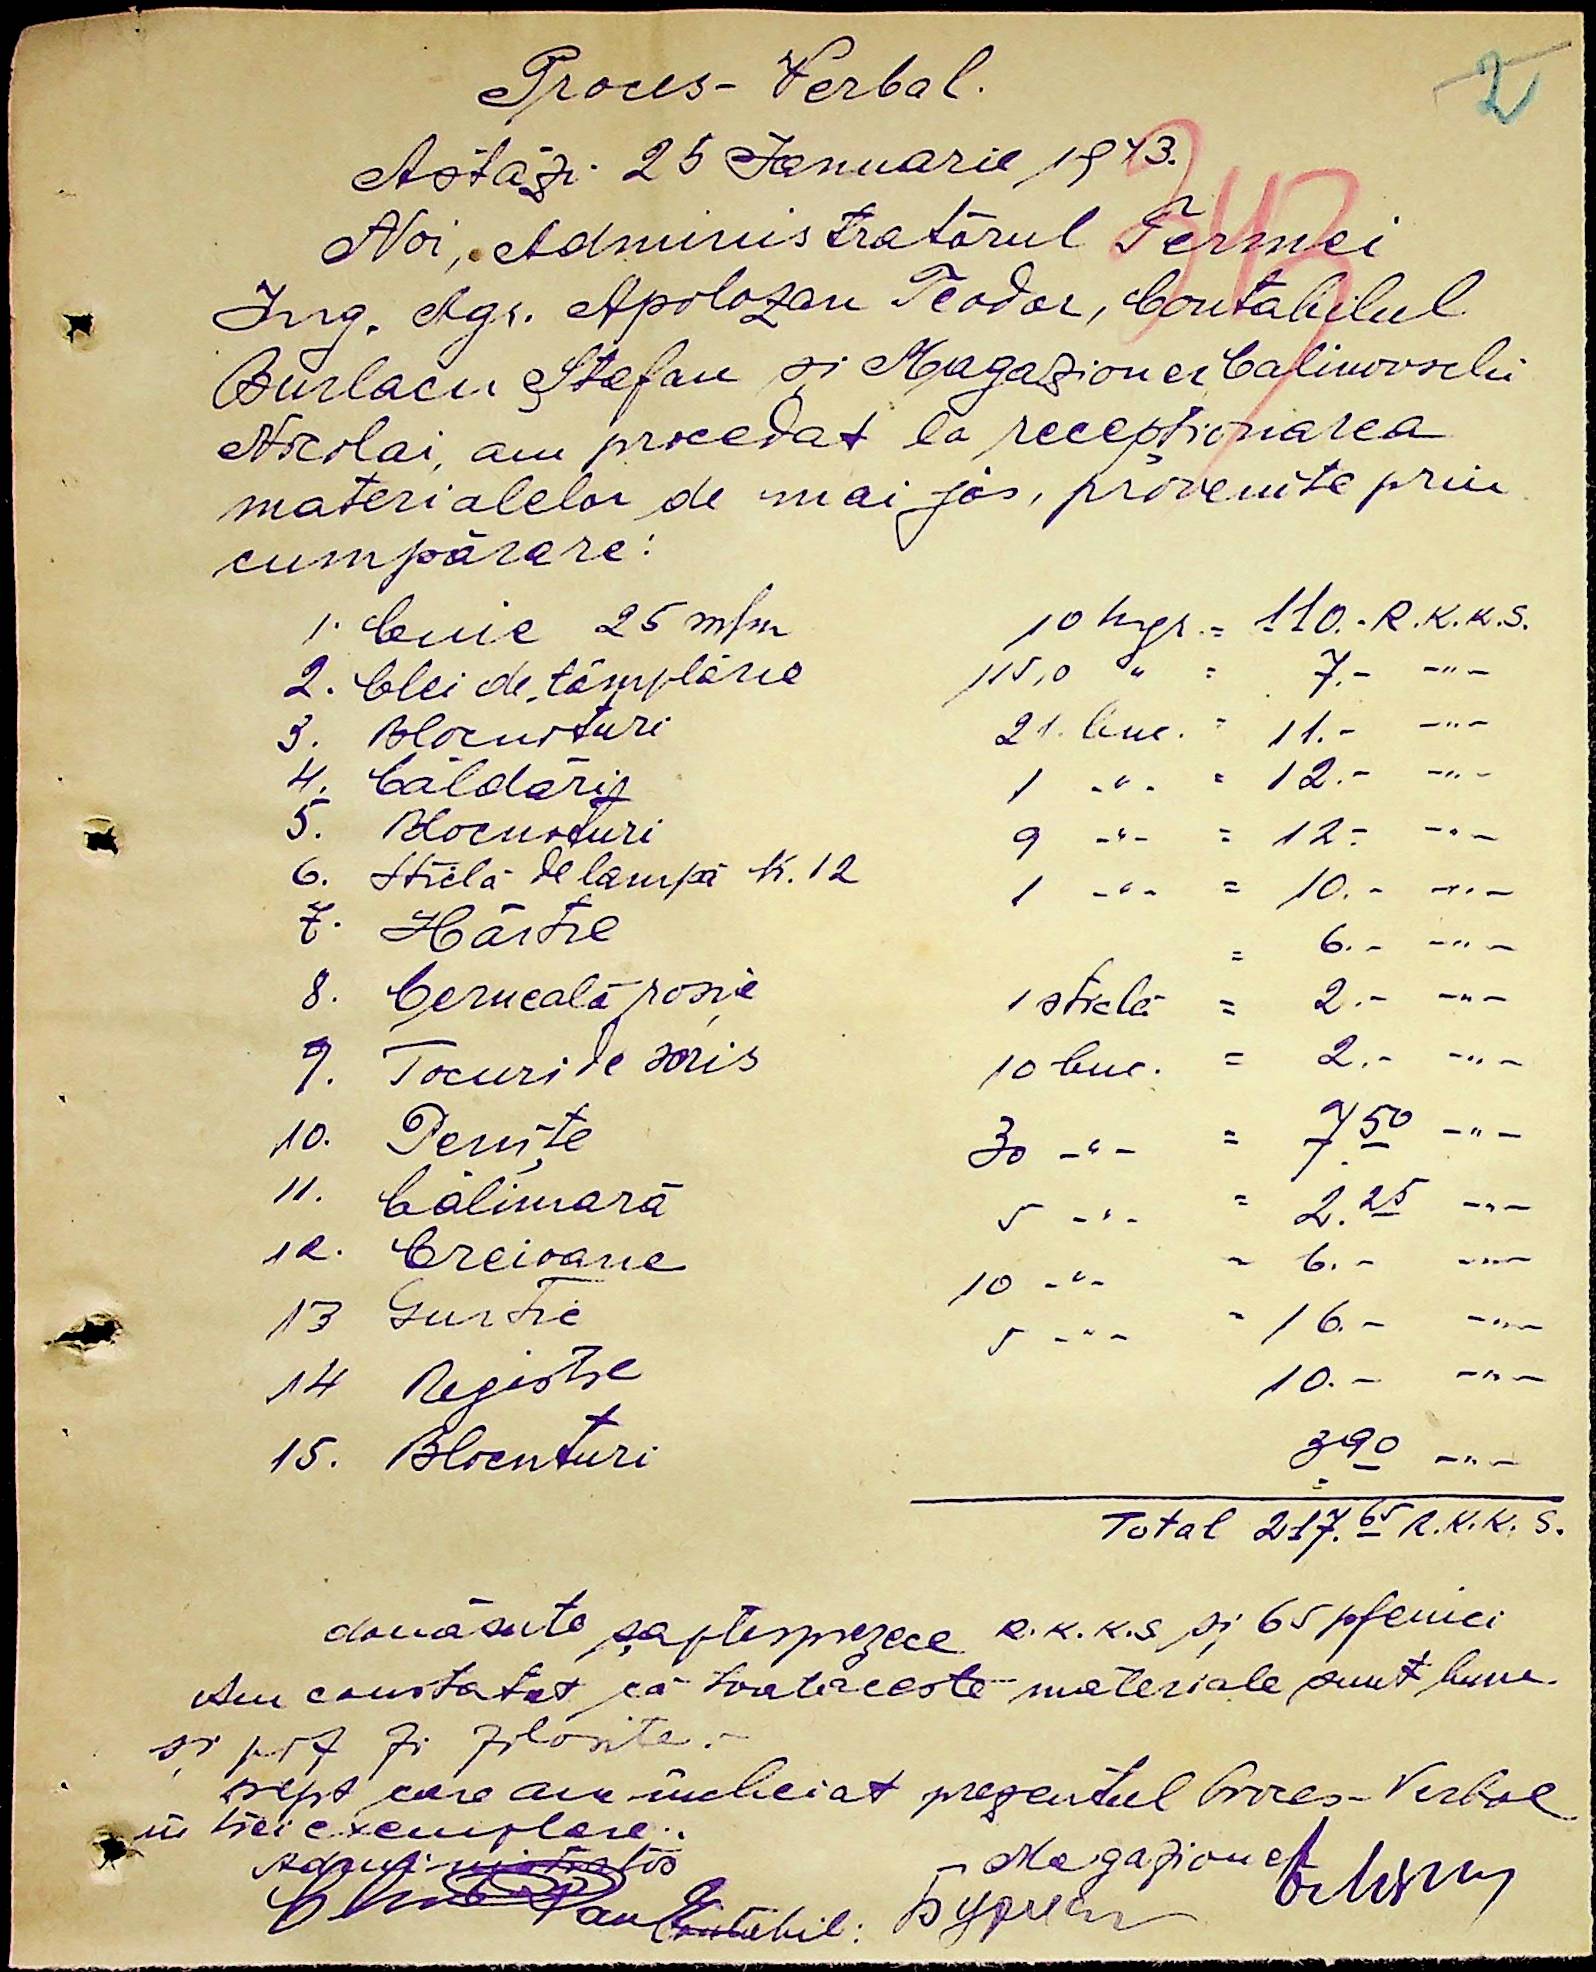 2
Proces-Verbal.
Astăzi 25 Ianuarie 1943.
343
Noi, Administratorul Fermei
Ing. Agr. Apolozan Teodor, Contabilul
Burlacu Ștefan și Magazioner Calinovschi
Nicolai, am procedat la recepționarea
materialelor de mai jos, provenite prin
cumpărare:
1. Cuie 25 m/m 10 kgr. = 110.- R.K.K.S.
2. Clei de tâmplărie 115,0 " = 7.- -"-
3. Blocnoturi 21. buc. = 11.- -"-
4. Căldări 1 -"- = 12.- -"-
5. Blocnoturi 9 -"- = 12.- -"-
6. Sticlă de lampă N. 12 1 -"- = 10.- -"-
7. Hârtie = 6.- -"-
8. Cerneală roșie 1 sticlă = 2.- -"-
9. Tocuri de scris 10 buc. = 2.- -"-
10. Penițe 30 -"- = 7.50 -"-
11. Călimară 5 -"- = 2.25 -"-
12. Creioane 10 -"- = 6.- -"-
13 5 -"- = 16.- -"-
14 Registre 10.- -"-
15. Blocnturi = 3 90 -"-
Total 217.65 R.K.K.S.
douăsute șaptesprezece R.K.K.S și 65 pfenici
Am constatat că toate aceste materiale sunt bune
și pot fi folosite.-
drept care am încheiat prezentul Proces-Verbal
în trei exemplare.
Administrator Magazioner
Contabil: